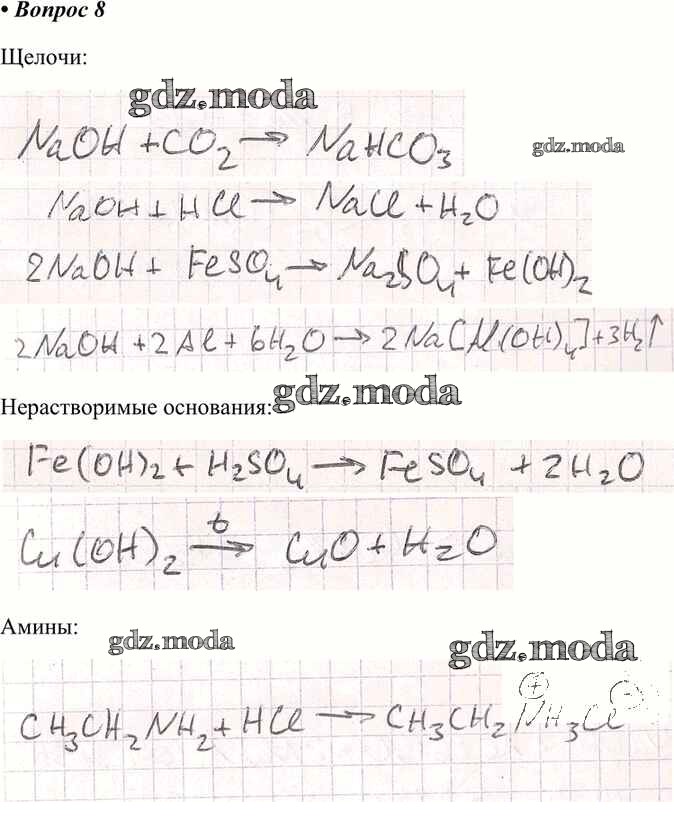 • Вопрос 8
Щелочи:
gdz.moda
NaOH + CO₂ → NaHCO₃
gdz.moda
NaOH + HCl → NaCl + H₂O
2NaOH + FeSO₄ → Na₂SO₄ + Fe(OH)₂
2NaOH + 2Al + 6H₂O → 2Na[Al(OH)₄] + 3H₂↑
Нерастворимые основания:
gdz.moda
Fe(OH)₂ + H₂SO₄ → FeSO₄ + 2H₂O
Cu(OH)₂ →ᵗ CuO + H₂O
Амины:
gdz.moda
gdz.moda
CH₃CH₂NH₂ + HCl → CH₃CH₂NH₃⊕Cl⊖